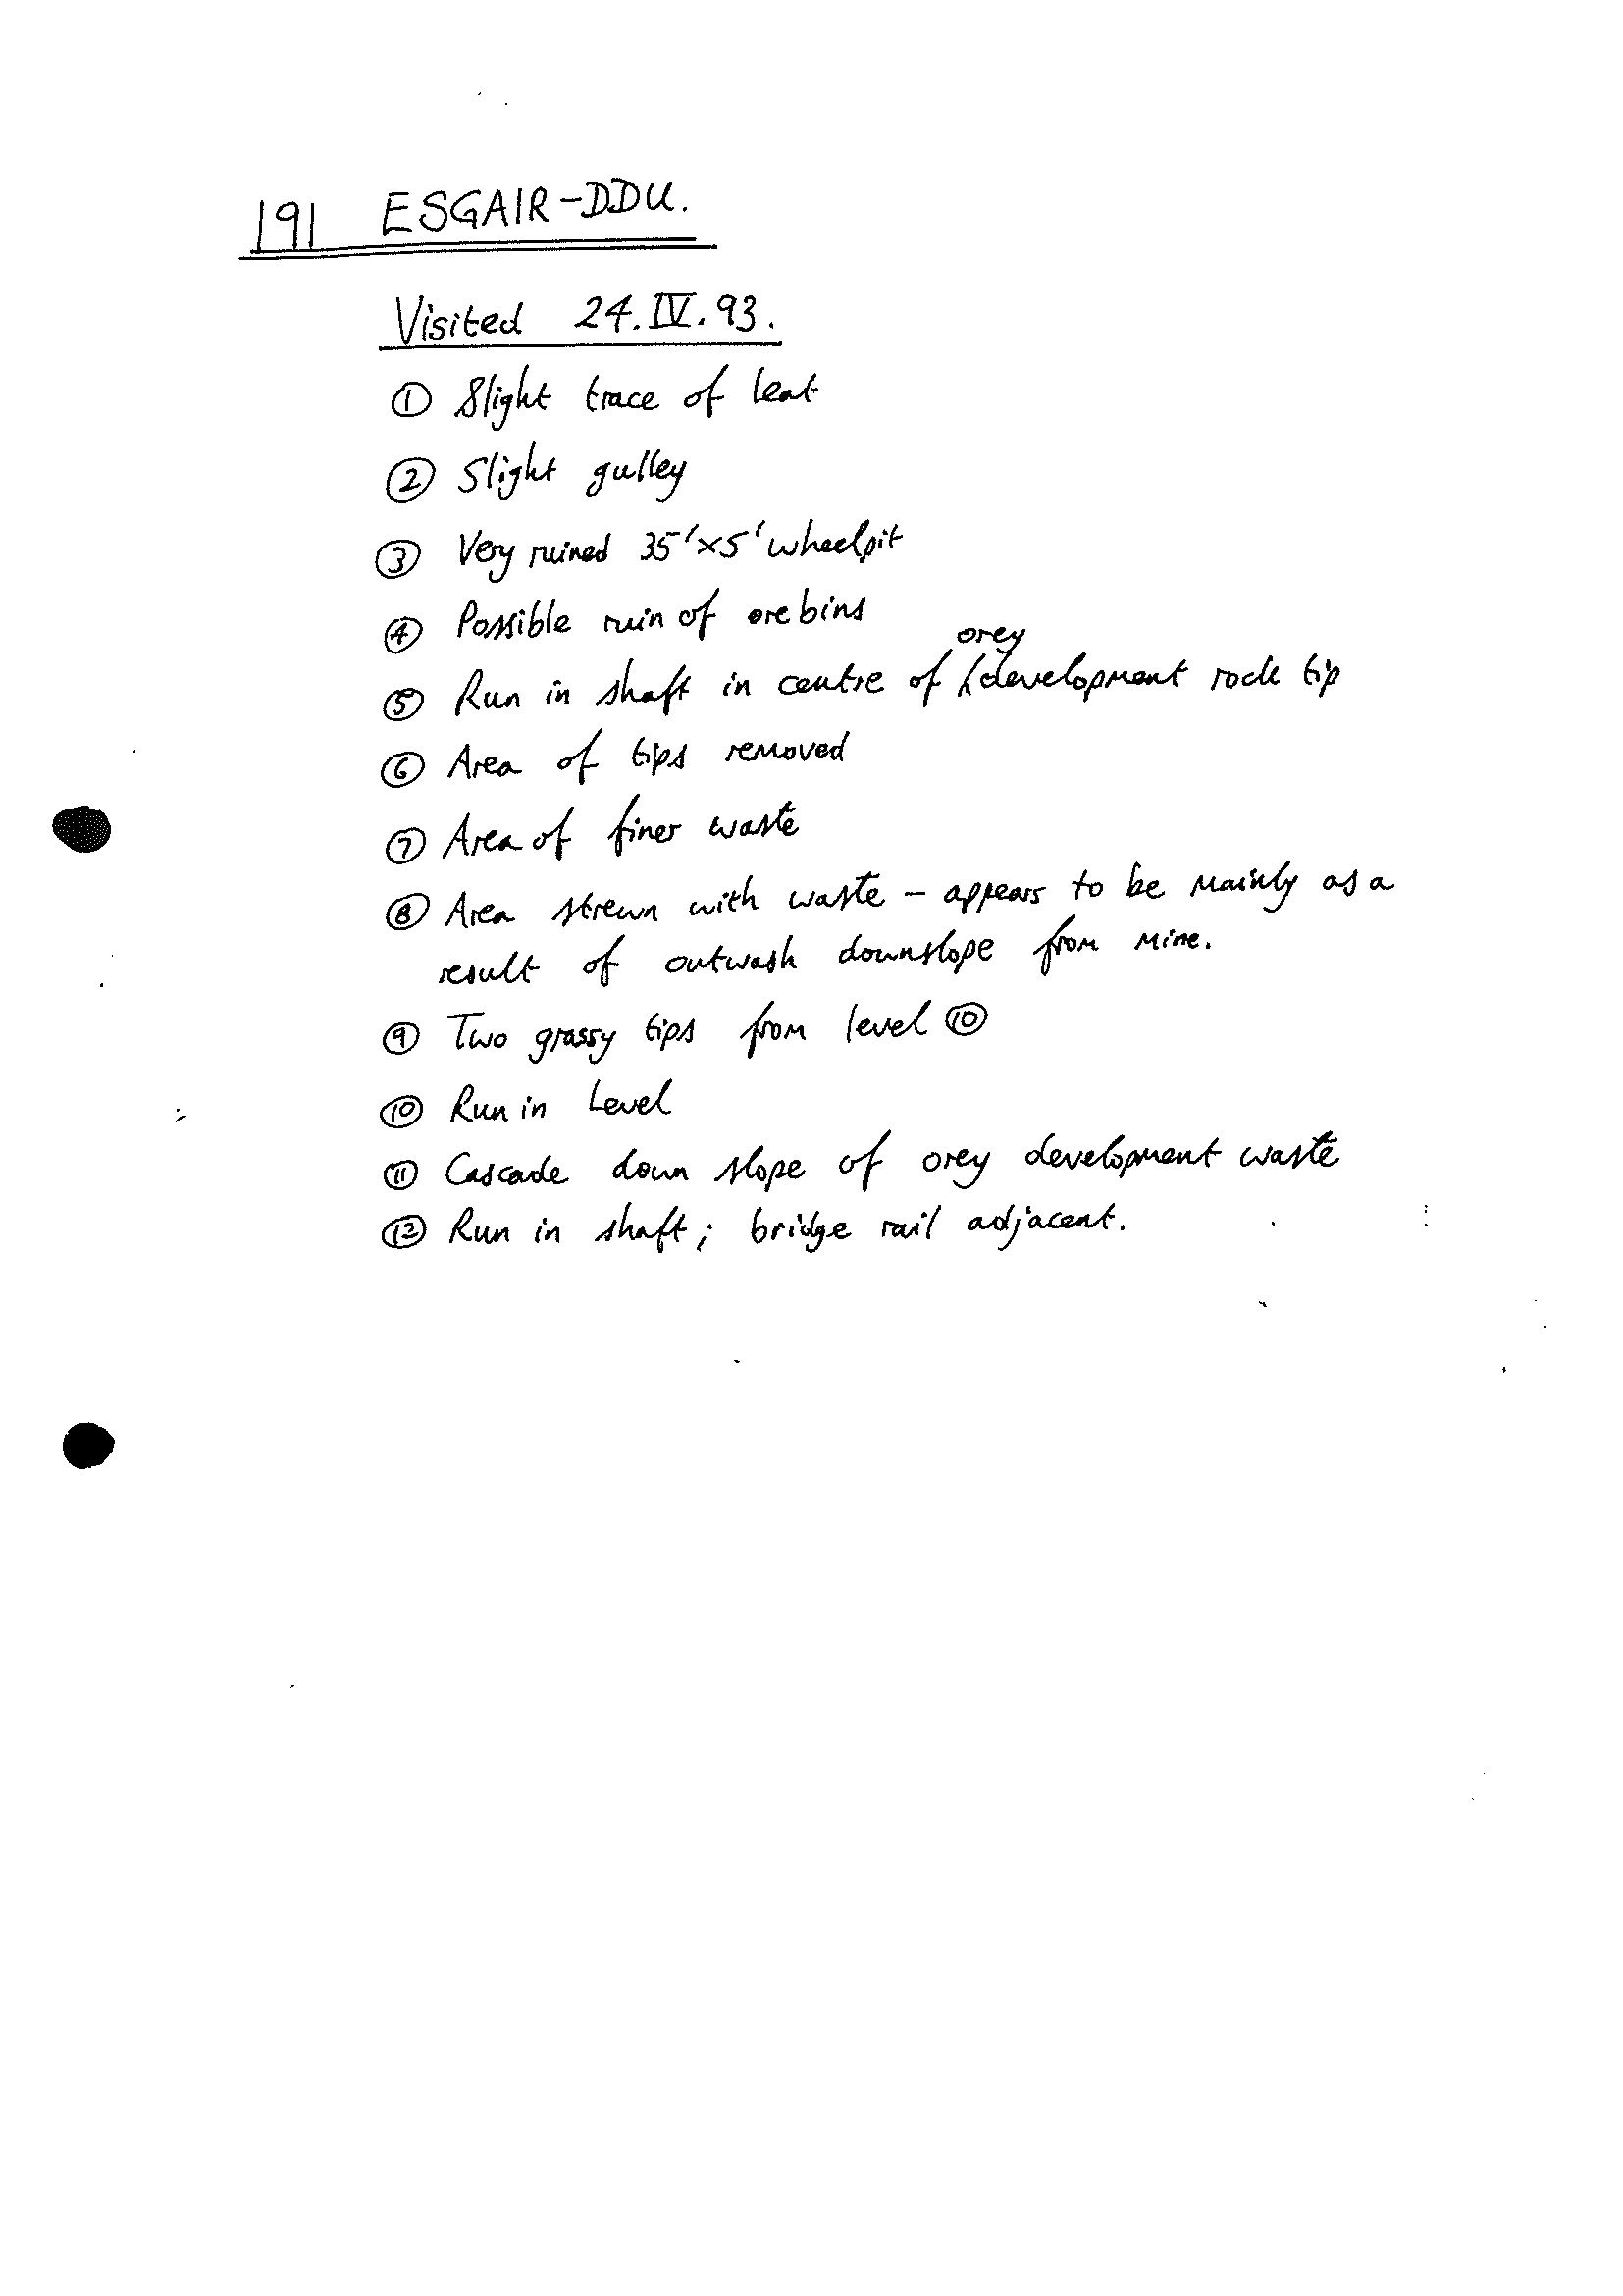 191 ESGAIR-DDU.
Visited 24.IV.93.
① Slight trace of leat
② Slight gulley
③ Very ruined 35'×5' wheelpit
④ Possible ruin of ore bins
orey
⑤ Run in shaft in centre of development rock tip
⑥ Area of tips removed
⑦ Area of finer waste
⑧ Area strewn with waste – appears to be mainly as a
result of outwash downslope from mine.
⑨ Two grassy tips from level ⑩
⑩ Run in Level
⑪ Cascade down slope of orey development waste
⑫ Run in shaft; bridge rail adjacent.